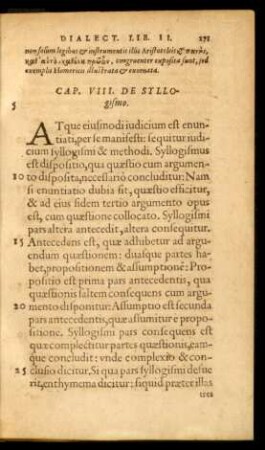 DIALECT. LIB. II. 271
non solum legibus & instrumentis illis Aristoteleis & παντὸς,
καθ' αὑτὸ, καθόλου πρῶτον, congruenter exposita sunt, sed
exemplis Homericis illustrata & exornata.
CAP. VIII. DE SYLLO-
5 gismo.
ATque eiusmodi iudicium est enun-
tiati, per se manifesti: sequitur iudi-
cium syllogismi & methodi. Syllogismus
est dispositio, qua quæstio cum argumen-
10 to disposita, necessariò concluditur: Nam
si enuntiatio dubia sit, quæstio efficitur,
& ad eius fidem tertio argumento opus
est, cum quæstione collocato. Syllogismi
pars altera antecedit, altera consequitur.
15 Antecedens est, quæ adhibetur ad argu-
endum quæstionem: duasque partes ha-
bet, propositionem & assumptionē: Pro-
positio est prima pars antecedentis, qua
quæstionis saltem consequens cum argu-
20 mento disponitur: Assumptio est secunda
pars antecedentis, quæ assumitur e propo-
sitione. Syllogismi pars consequens est
quæ complectitur partes quæstionis, eam-
que concludit: vnde complexio & con-
25 clusio dicitur. Si qua pars syllogismi defue
rit, enthymema dicitur: siquid præter illas